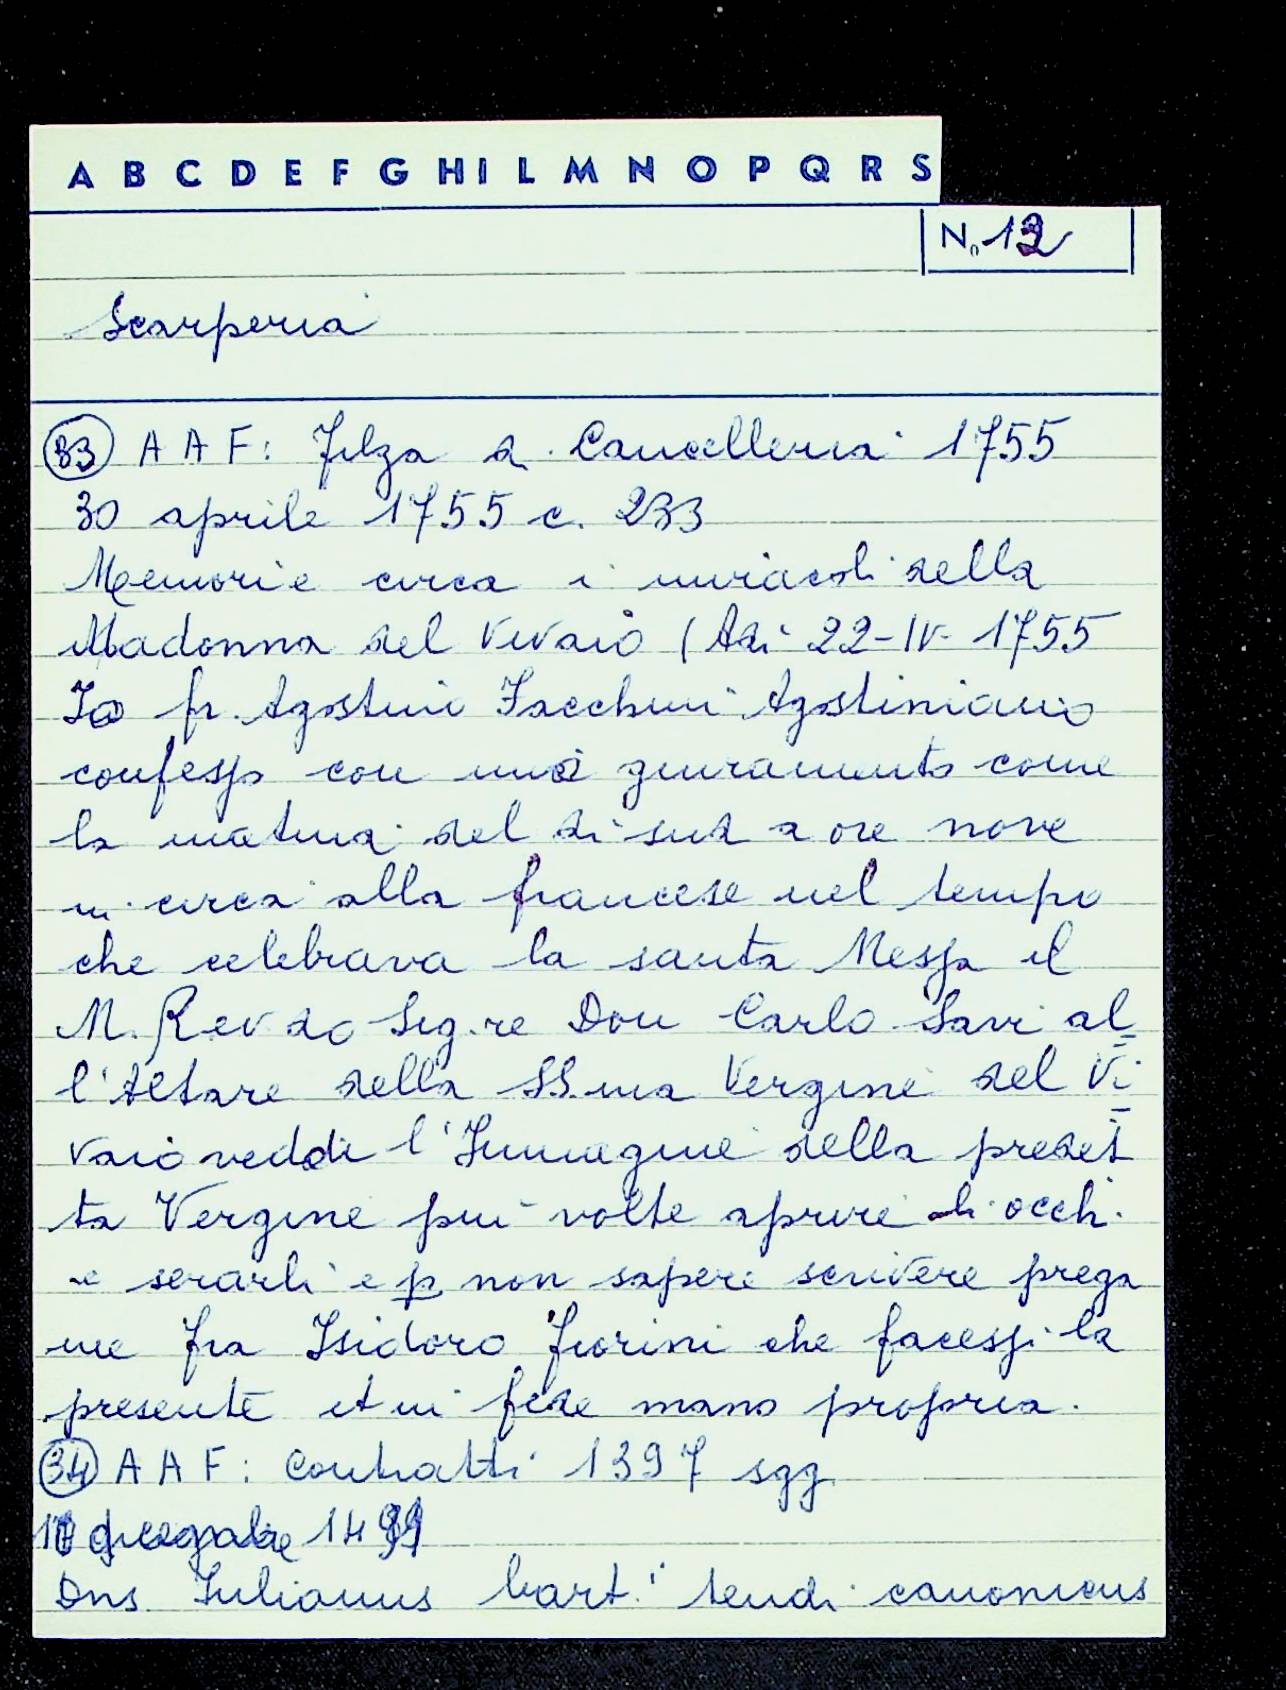 A B C D E F G H I L M N O P Q R S
N. 12
Scarperia
33 A A F: Filza di Cancelleria 1755
30 aprile 1755 c. 233
Memorie circa i miracoli della
Madonna del Vivaio (Adi 22-IV- 1755
Io fr. Agostino Facchini Agostiniano
confesso con mio giuramento come
la matina del di sud a ore nove
in circa alla francese nel tempo
che celebrava la santa Messa il
M. Rev do Sig.re Don Carlo Savi al
l'Altare della SS.ma Vergine del Vi
vaio veddi l'Immagine della predet
ta Vergine piu volte aprire li occhi
e serarli e p non sapere scrivere prega
me fra Isidoro Fiorini che facessi la
presente et in fede mano propria.
34 A A F: Contratti 1397 sgg.
14
Dns Iulianus bart. tendi canonicus